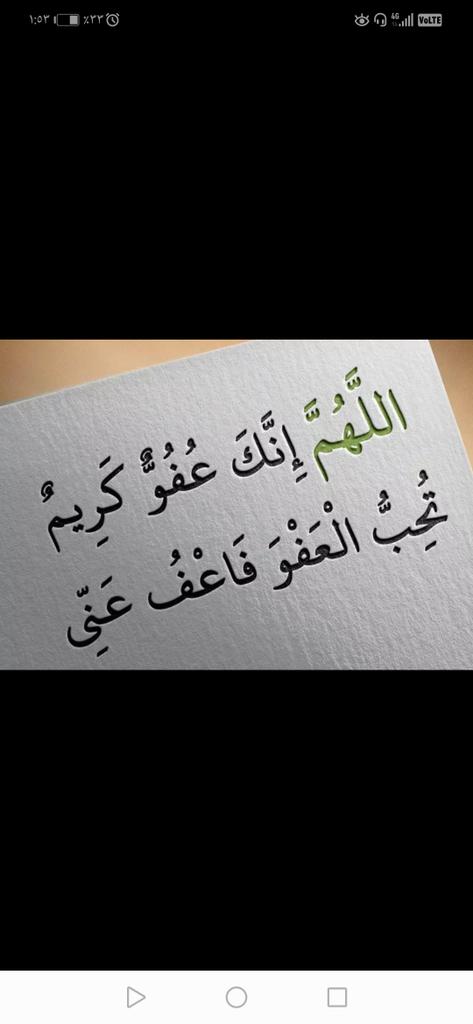 ١:٥٣ ٪٢٣ 4G VoLTE
اللَّهُمَّ إِنَّكَ عُفُوٌّ كَرِيمٌ
تُحِبُّ الْعَفْوَ فَاعْفُ عَنِّى